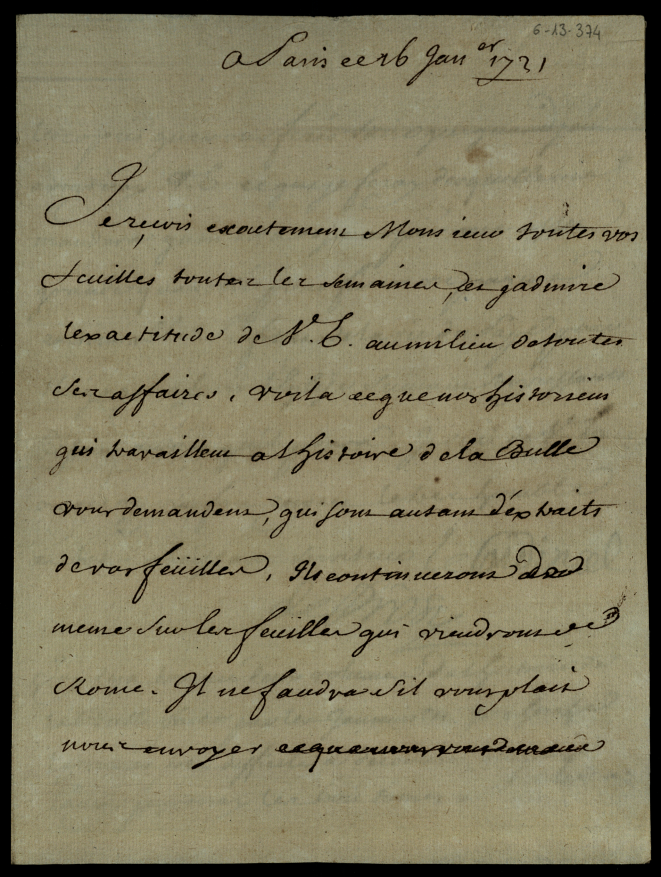 6-13-374
A Paris ce 26 Janer 1721
Je reçois exactement Monsieur toutes vos
feuilles toutes les semaines, et j'admire
l'exactitude de V. E. au milieu de toutes
ses affaires. voila ce que nos historiens
qui travaillent a l'histoire de la Bulle
vous demandent, qui sont autant d'extraits
de vos feüilles. Ils continueront de
meme sur les feuilles qui viendront de
Rome. Il ne faudra s'il vous plait
nous envoyer ce que nous vous